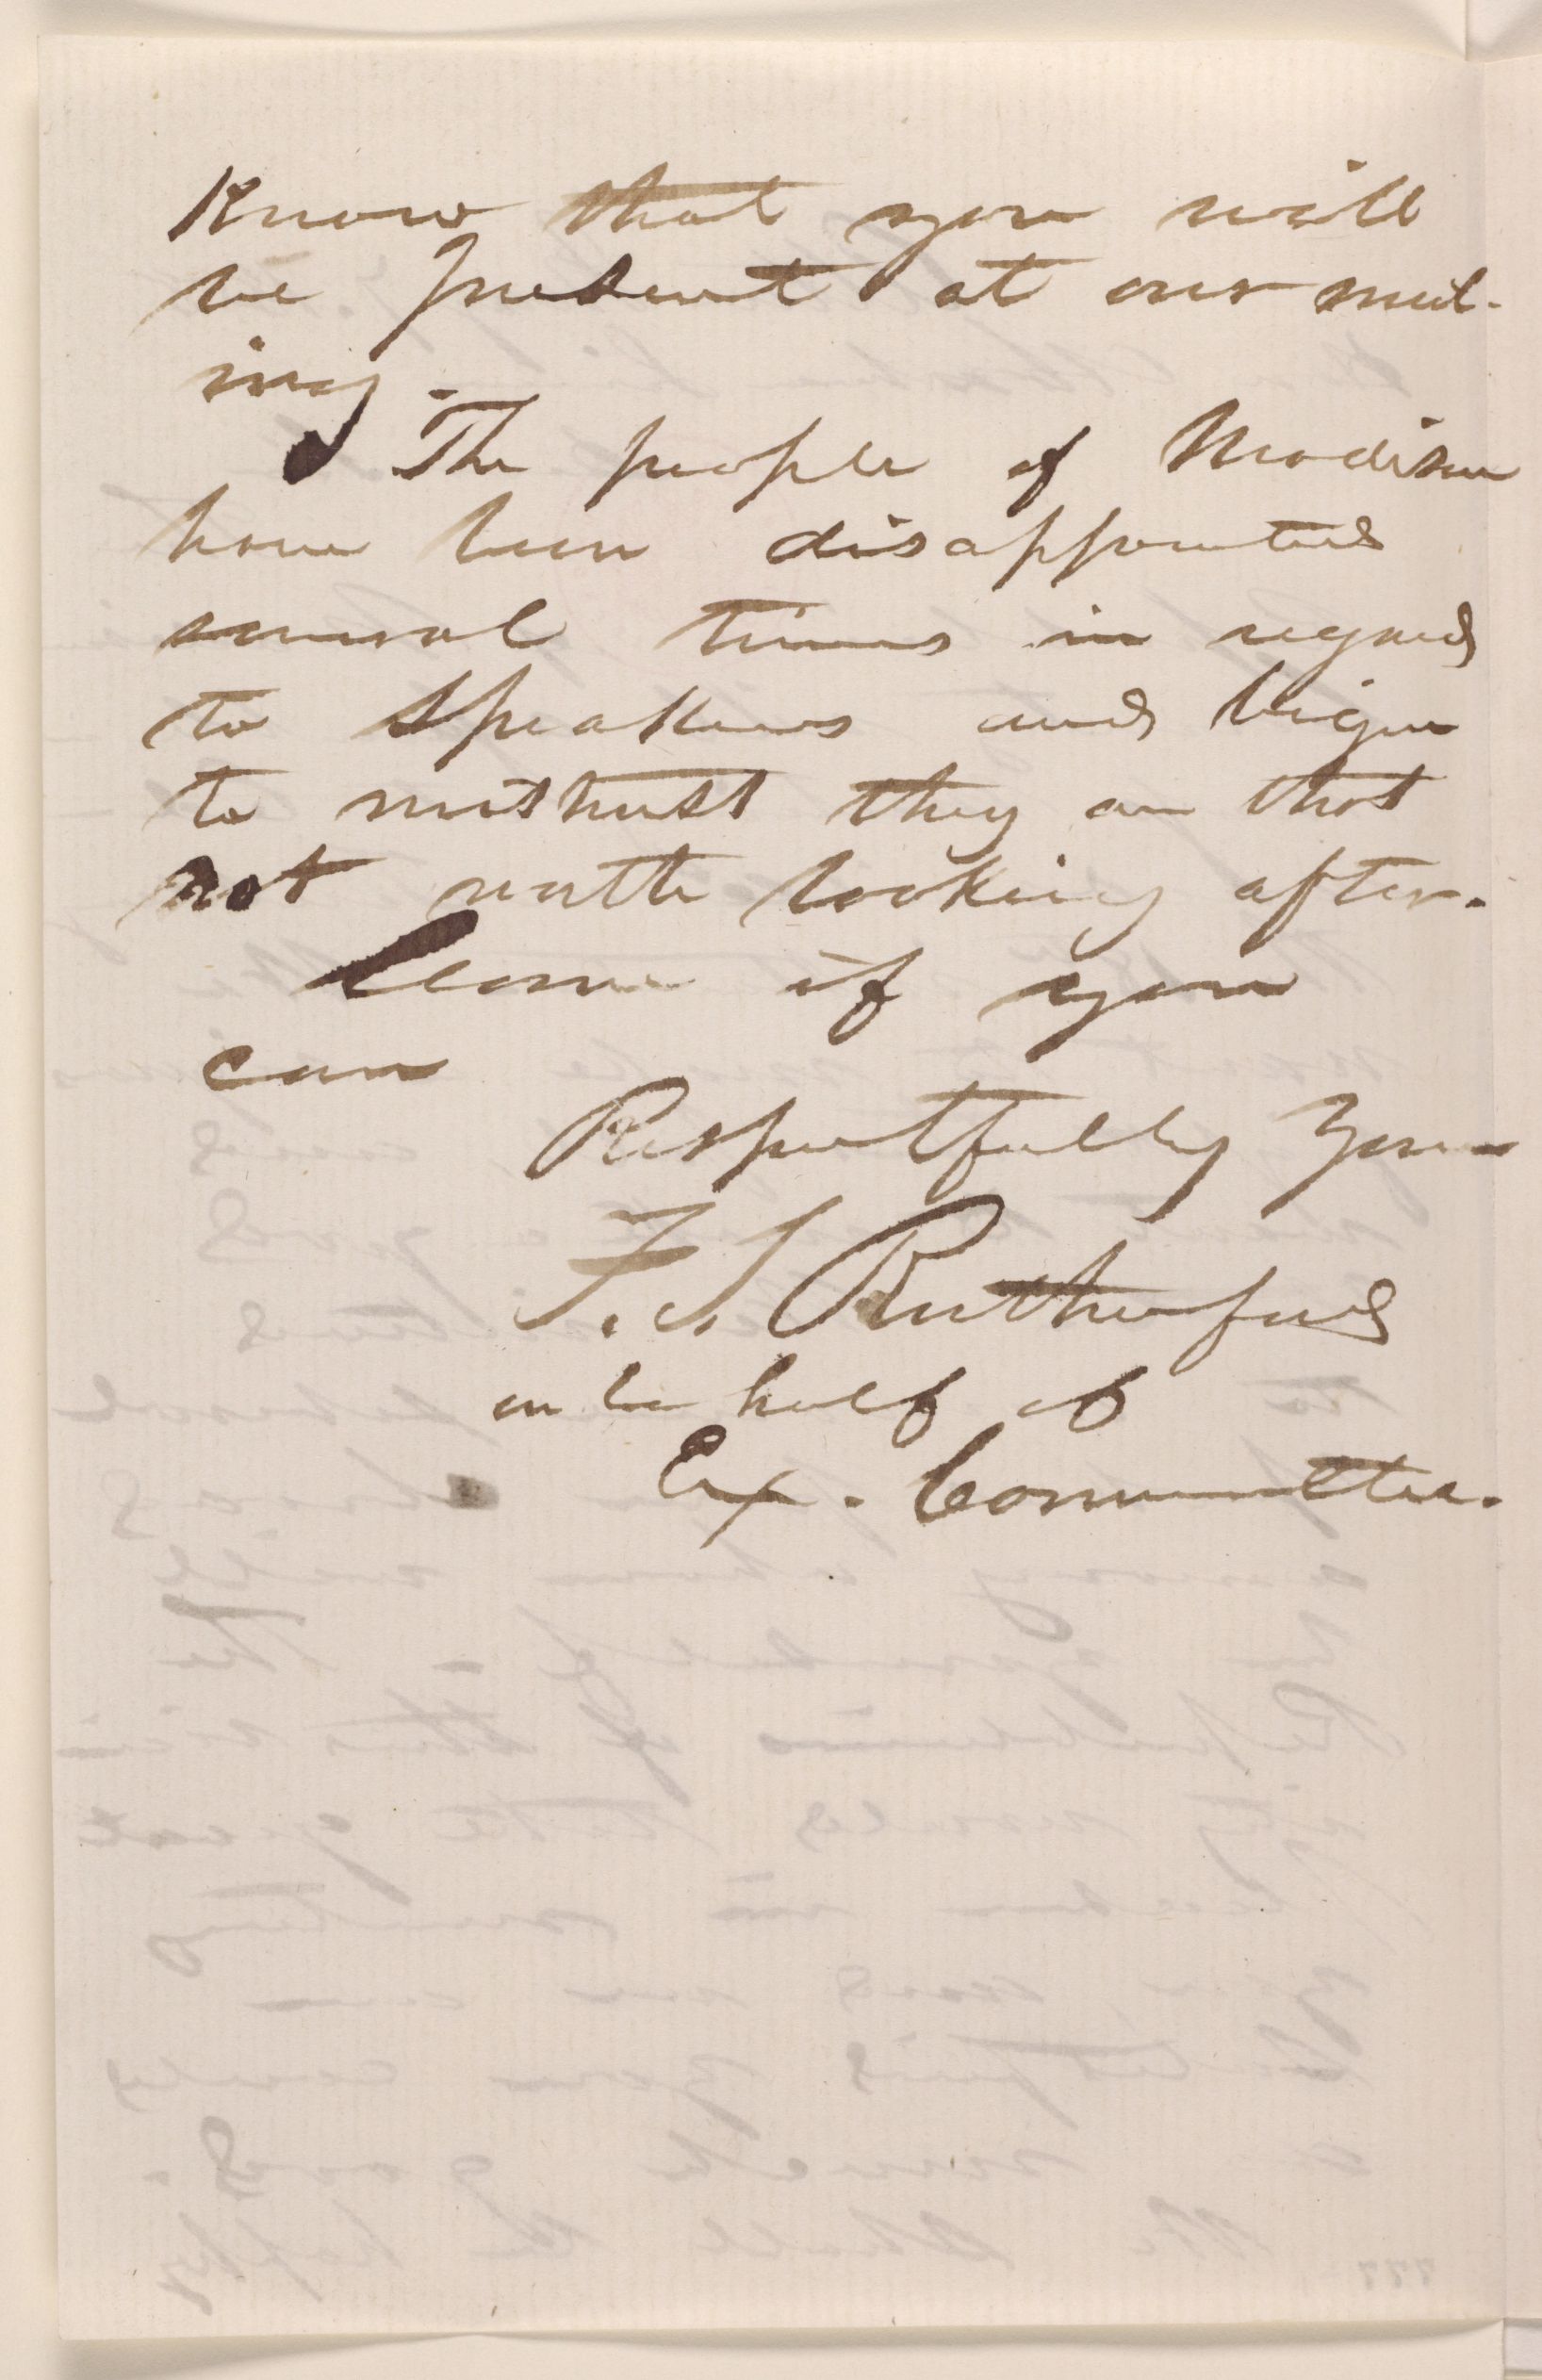 Know that you will
be present at our meet-
ing.
The people of Madison
have been disappointed
several times in regard
to speakers and begin
to mistrust they are that
not worth looking after.
Come if you
can
Respectfully Yours
F. S. Rutherford
on behalf of
Ex. Committee.